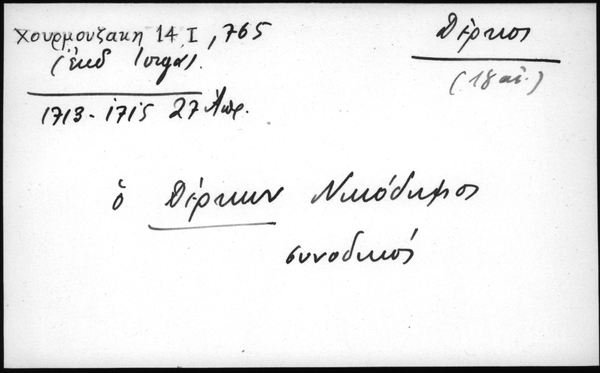 Χουρμουζακη 14 I, 765
Δέρκοι
(ἐκδ Ιοργά).
(18 αἰ.)
1713-1715 27 Ἀπρ.
ὁ Δέρκων Νικόδημος
συνοδικός